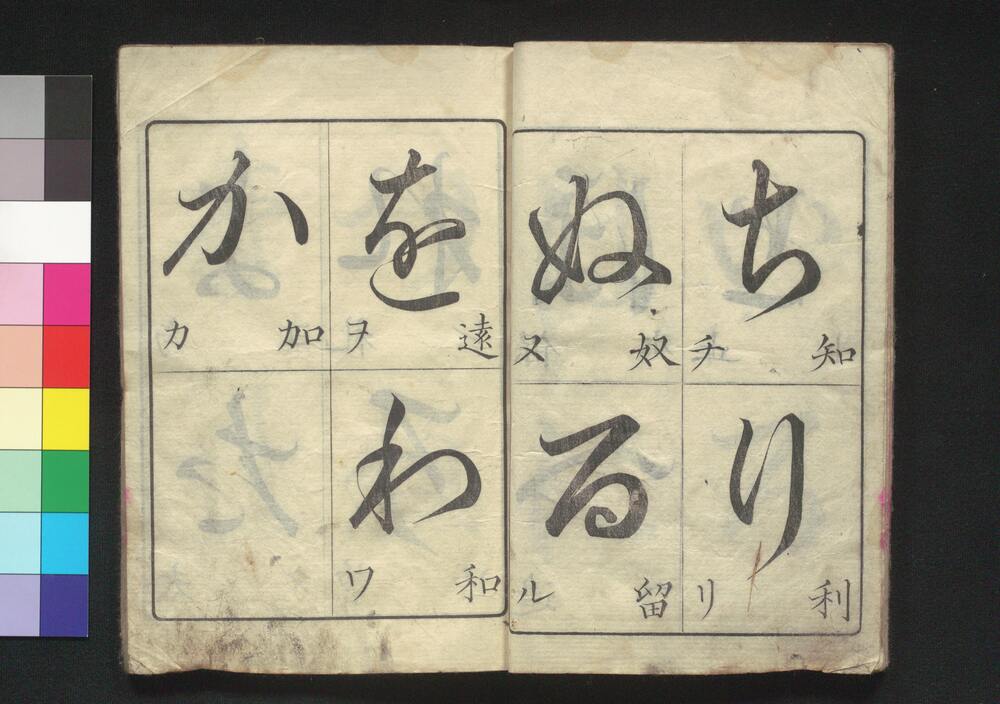 ち
知 チ
り
利 リ
ぬ
奴 ヌ
る
留 ル
を
遠 ヲ
わ
和 ワ
か
加 カ